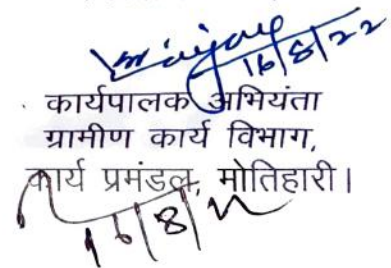 16/8/22
कार्यपालक अभियंता
ग्रामीण कार्य विभाग,
कार्य प्रमंडल, मोतिहारी।
16/8/22